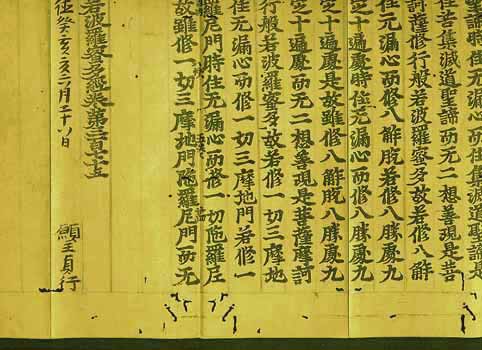 聖諦時住无漏心而住集滅道聖諦是
住苦集滅道聖諦而无二想善現是菩
訶薩修行般若波羅蜜多故若修八解
住无漏心而修八解脫若修八勝處九
定十遍處時住无漏心而修八勝處九
定十遍處是故雖修八解脫八勝處九
定十遍處而无二想善現是菩薩摩訶
行般若波羅蜜多故若修一切三摩地
住无漏心而修一切三摩地門若修一
羅尼門時住无漏心而修一切陀羅尼
故雖修一切三摩地門陀羅尼門而无
若波羅蜜多經卷第三百七十五
癸亥 二月二十八日
貞行